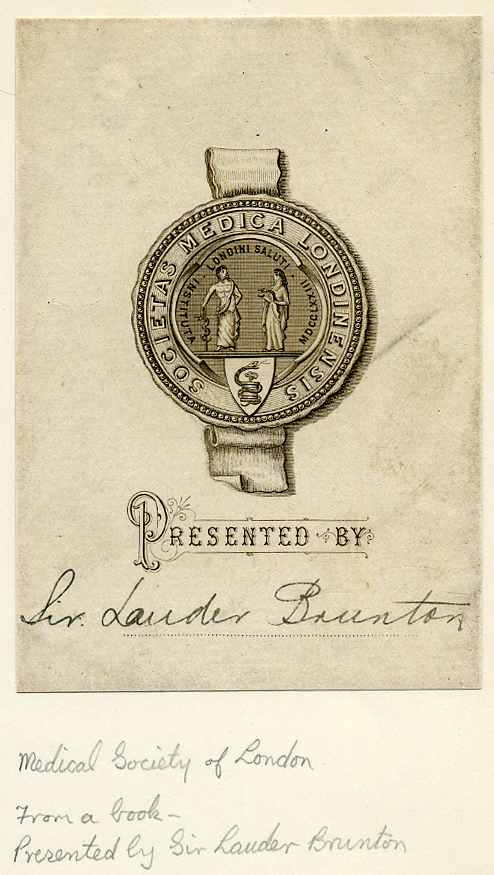 SOCIETAS MEDICA LONDINENSIS
INSTITUTA LONDINI SALUTI MDCCLXXIII
PRESENTED BY
Sir. Lauder Brunton
Medical Society of London
From a book-
Presented by Sir Lauder Brunton